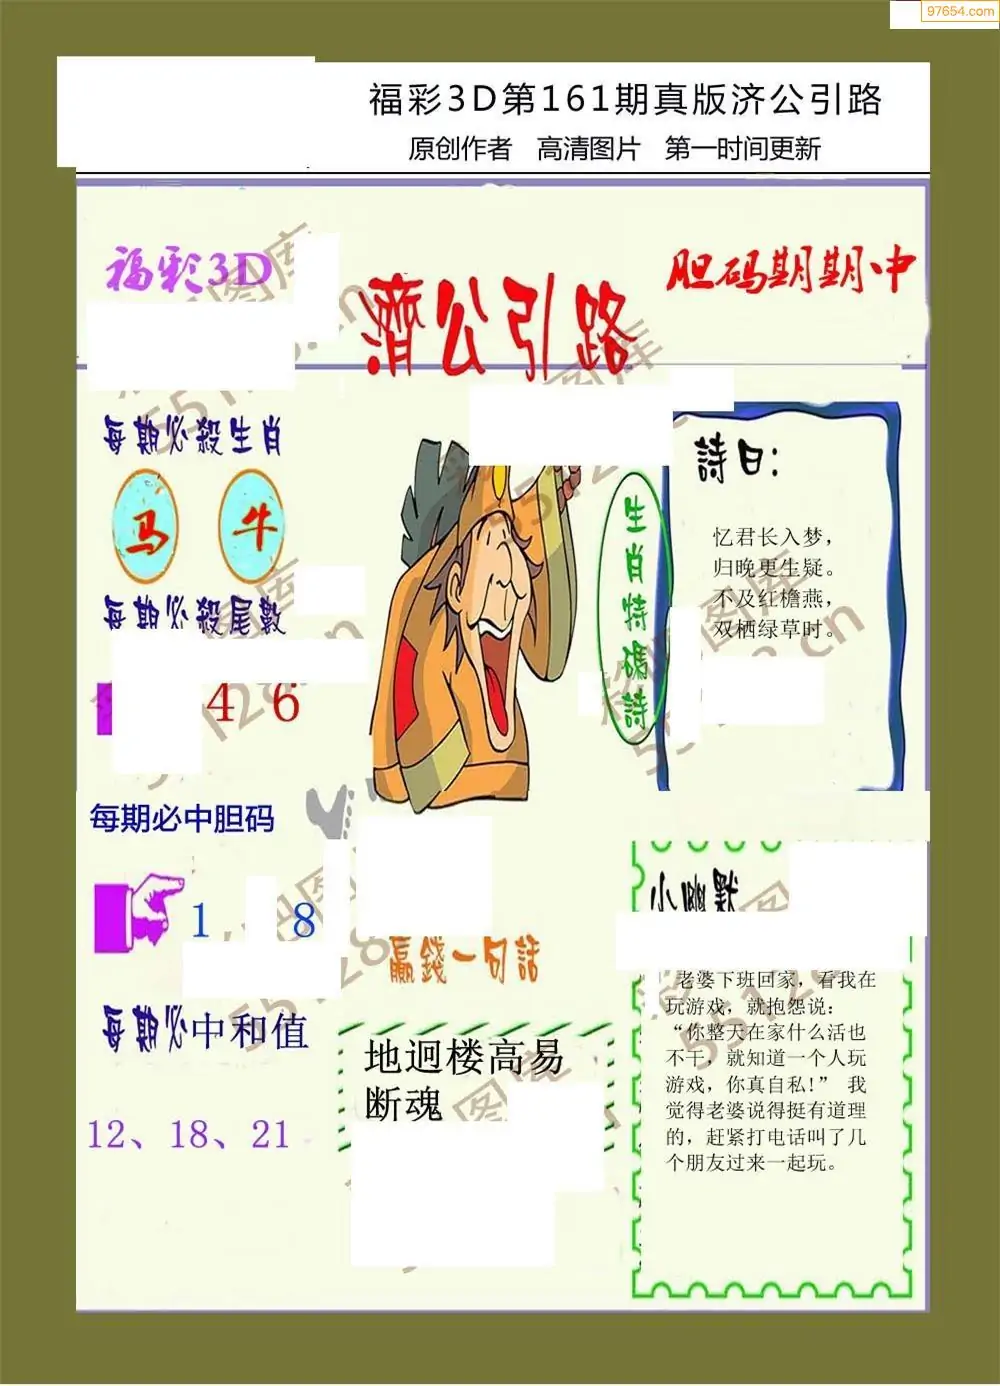 97654.com
福彩3D第161期真版济公引路
原创作者 高清图片 第一时间更新
福彩3D
濟公引路
胆码期期中
每期必殺生肖
马 牛
每期必殺尾數
4 6
每期必中胆码
1 8
每期必中和值
12、18、21
生肖特碼詩
詩曰:
忆君长入梦，
归晚更生疑。
不及红檐燕，
双栖绿草时。
赢錢一句話
地迥楼高易
断魂
小幽默
老婆下班回家，看我在
玩游戏，就抱怨说：
“你整天在家什么活也
不干，就知道一个人玩
游戏，你真自私!” 我
觉得老婆说得挺有道理
的，赶紧打电话叫了几
个朋友过来一起玩。